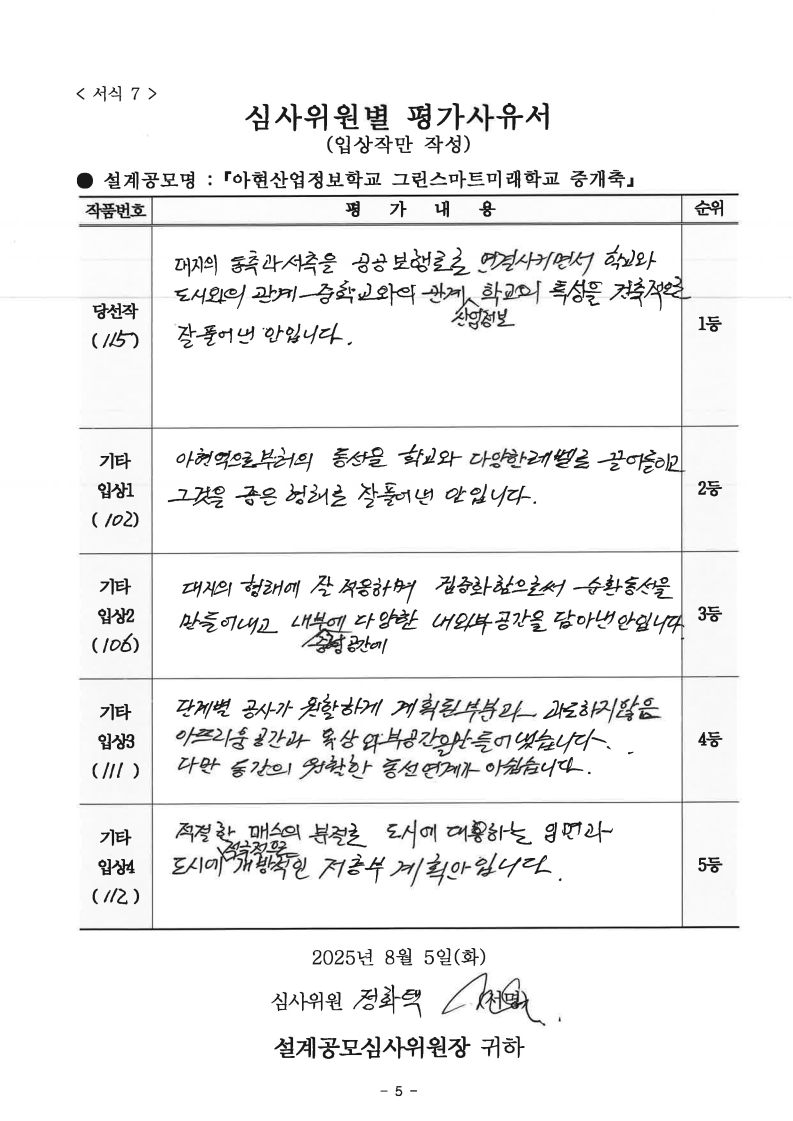 < 서식 7 >
심사위원별 평가사유서
(입상작만 작성)
● 설계공모명 : 『아현산업정보학교 그린스마트미래학교 증개축』
작품번호 평 가 내 용 순위
당선작 (115) 1등
대지의 동측과 서측을 공공보행로로 연결시키면서 학교와
도시와의 관계 중학교와의 관계 산업정보 학교의 특성을 건축적으로
잘 풀어낸 안입니다.
기타 입상1 (102) 2등
아현역으로부터의 동선을 학교와 다양한 레벨로 끌어들이고
그것을 좋은 형태로 잘 풀어낸 안입니다.
기타 입상2 (106) 3등
대지의 형태에 잘 적응하며 집중화함으로서 순환동선을
만들어내고 내부에 중앙공간에 다양한 내외부공간을 담아낸 안입니다
기타 입상3 (111) 4등
단계별 공사가 원활하게 계획된 부분과 과도하지 않음
아뜨리움공간과 옥상외부공간을 만들어 냈습니다.
다만 동간의 원활한 동선연계가 아쉽습니다.
기타 입상4 (112) 5등
적절한 매스의 분절로 도시에 대응하는 입면과
도시에 적극적으로 개방적인 저층부 계획안입니다.
2025년 8월 5일(화)
심사위원 정화택 (서명)
설계공모심사위원장 귀하
- 5 -